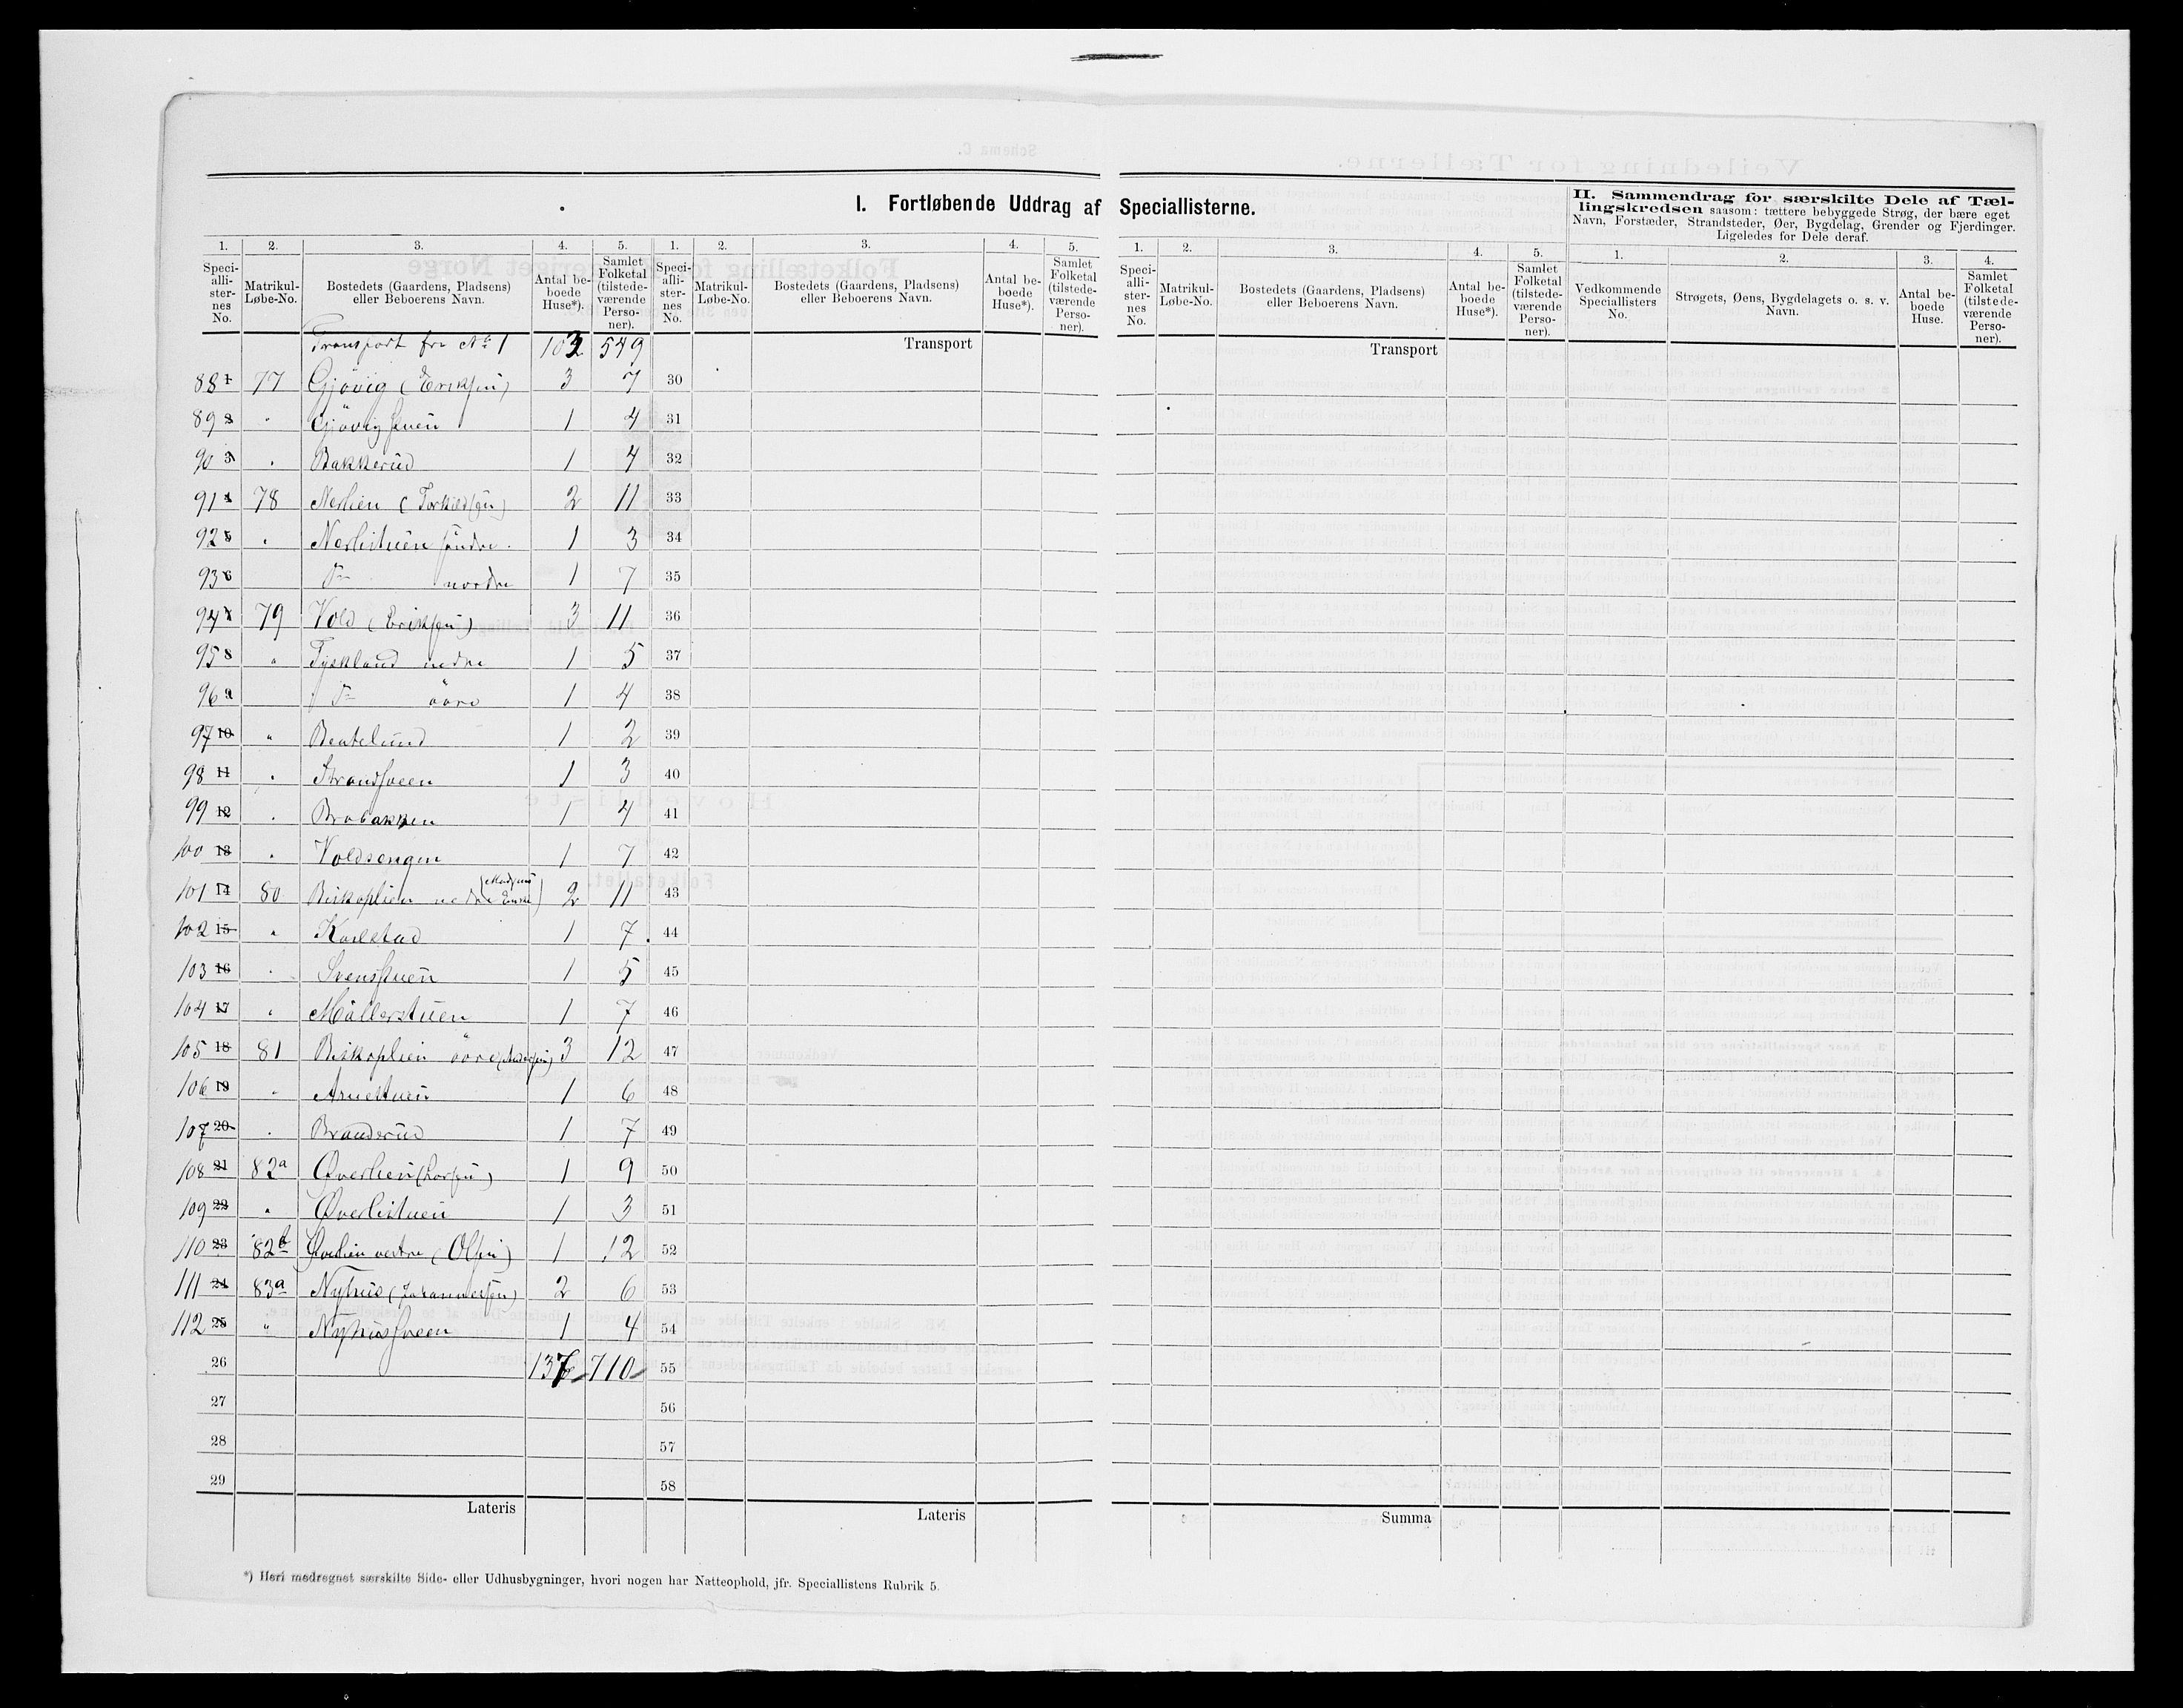 I. Fortløbende Uddrag af Speciallisterne.
II. Sammendrag for særskilte Dele af Tæl-
lingskredsen saasom: tættere bebyggede Strøg, der bære eget
Navn, Forstæder, Strandsteder, Øer, Bygdelag, Grender og Fjerdinger.
Ligeledes for Dele deraf.
1. 2. 3. 4. 5. 1. 2. 3. 4. 5. 1. 2. 3. 4. 5. 1. 2. 3. 4.
Speci-alli-ster-nes No. Matrikul-Løbe-No. Bostedets (Gaardens, Pladsens) eller Beboerens Navn. Antal be-boede Huse*). Samlet Folketal (tilstede-værende Perso-ner).
Speci-alli-ster-nes No. Matrikul-Løbe-No. Bostedets (Gaardens, Pladsens) eller Beboerens Navn. Antal be-boede Huse*). Samlet Folketal (tilstede-værende Perso-ner).
Speci-alli-ster-nes No. Matrikul-Løbe-No. Bostedets (Gaardens, Pladsens) eller Beboerens Navn. Antal be-boede Huse*). Samlet Folketal (tilstede-værende Perso-ner).
Vedkommende Speciallisters No. Strøgets, Øens, Bygdelagets o. s. v. Navn. Antal be-boede Huse. Samlet Folketal (tilstede-værende Perso-ner).
Transport fra No 1 103 549 Transport Transport
88 1 77 Gjövig (Eriksen) 3 7 30
89 2 " Gjövigsveen 1 4 31
90 3 " Bakkerud 1 4 32
91 4 78 Nerlien (Torkildsen) 2 11 33
92 5 " Nerlistuen söndre 1 3 34
93 6 Do nordre 1 7 35
94 7 79 Vold (Eriksen) 3 11 36
95 8 " Tyskland nedre 1 5 37
96 9 Do övre 1 4 38
97 10 " Beatelund 1 2 39
98 11 " Strandsveen 1 3 40
99 12 " Brobakken 1 4 41
100 13 " Voldsengen 1 7 42
101 14 80 Biskoplien nedre (Madsens Enke) 2 11 43
102 15 " Karlstad 1 7 44
103 16 " Svensstuen 1 5 45
104 17 " Möllerstuen 1 7 46
105 18 81 Biskoplien övre (Andersen) 3 12 47
106 19 " Arnestuen 1 6 48
107 20 " Branderud 1 7 49
108 21 82a Överlien (Larsen) 1 9 50
109 22 " Överlistuen 1 3 51
110 23 82b Överlien vestre (Olsen) 1 12 52
111 24 83a Nyhus (Johannessen) 2 6 53
112 25 " Nyhussveen 1 4 54
26 137 710 55
27 56
28 57
29 58
Lateris Lateris Summa
*) Heri medregnet særskilte Side- eller Udhusbygninger, hvori nogen har Natteophold, jfr. Speciallistens Rubrik 5.